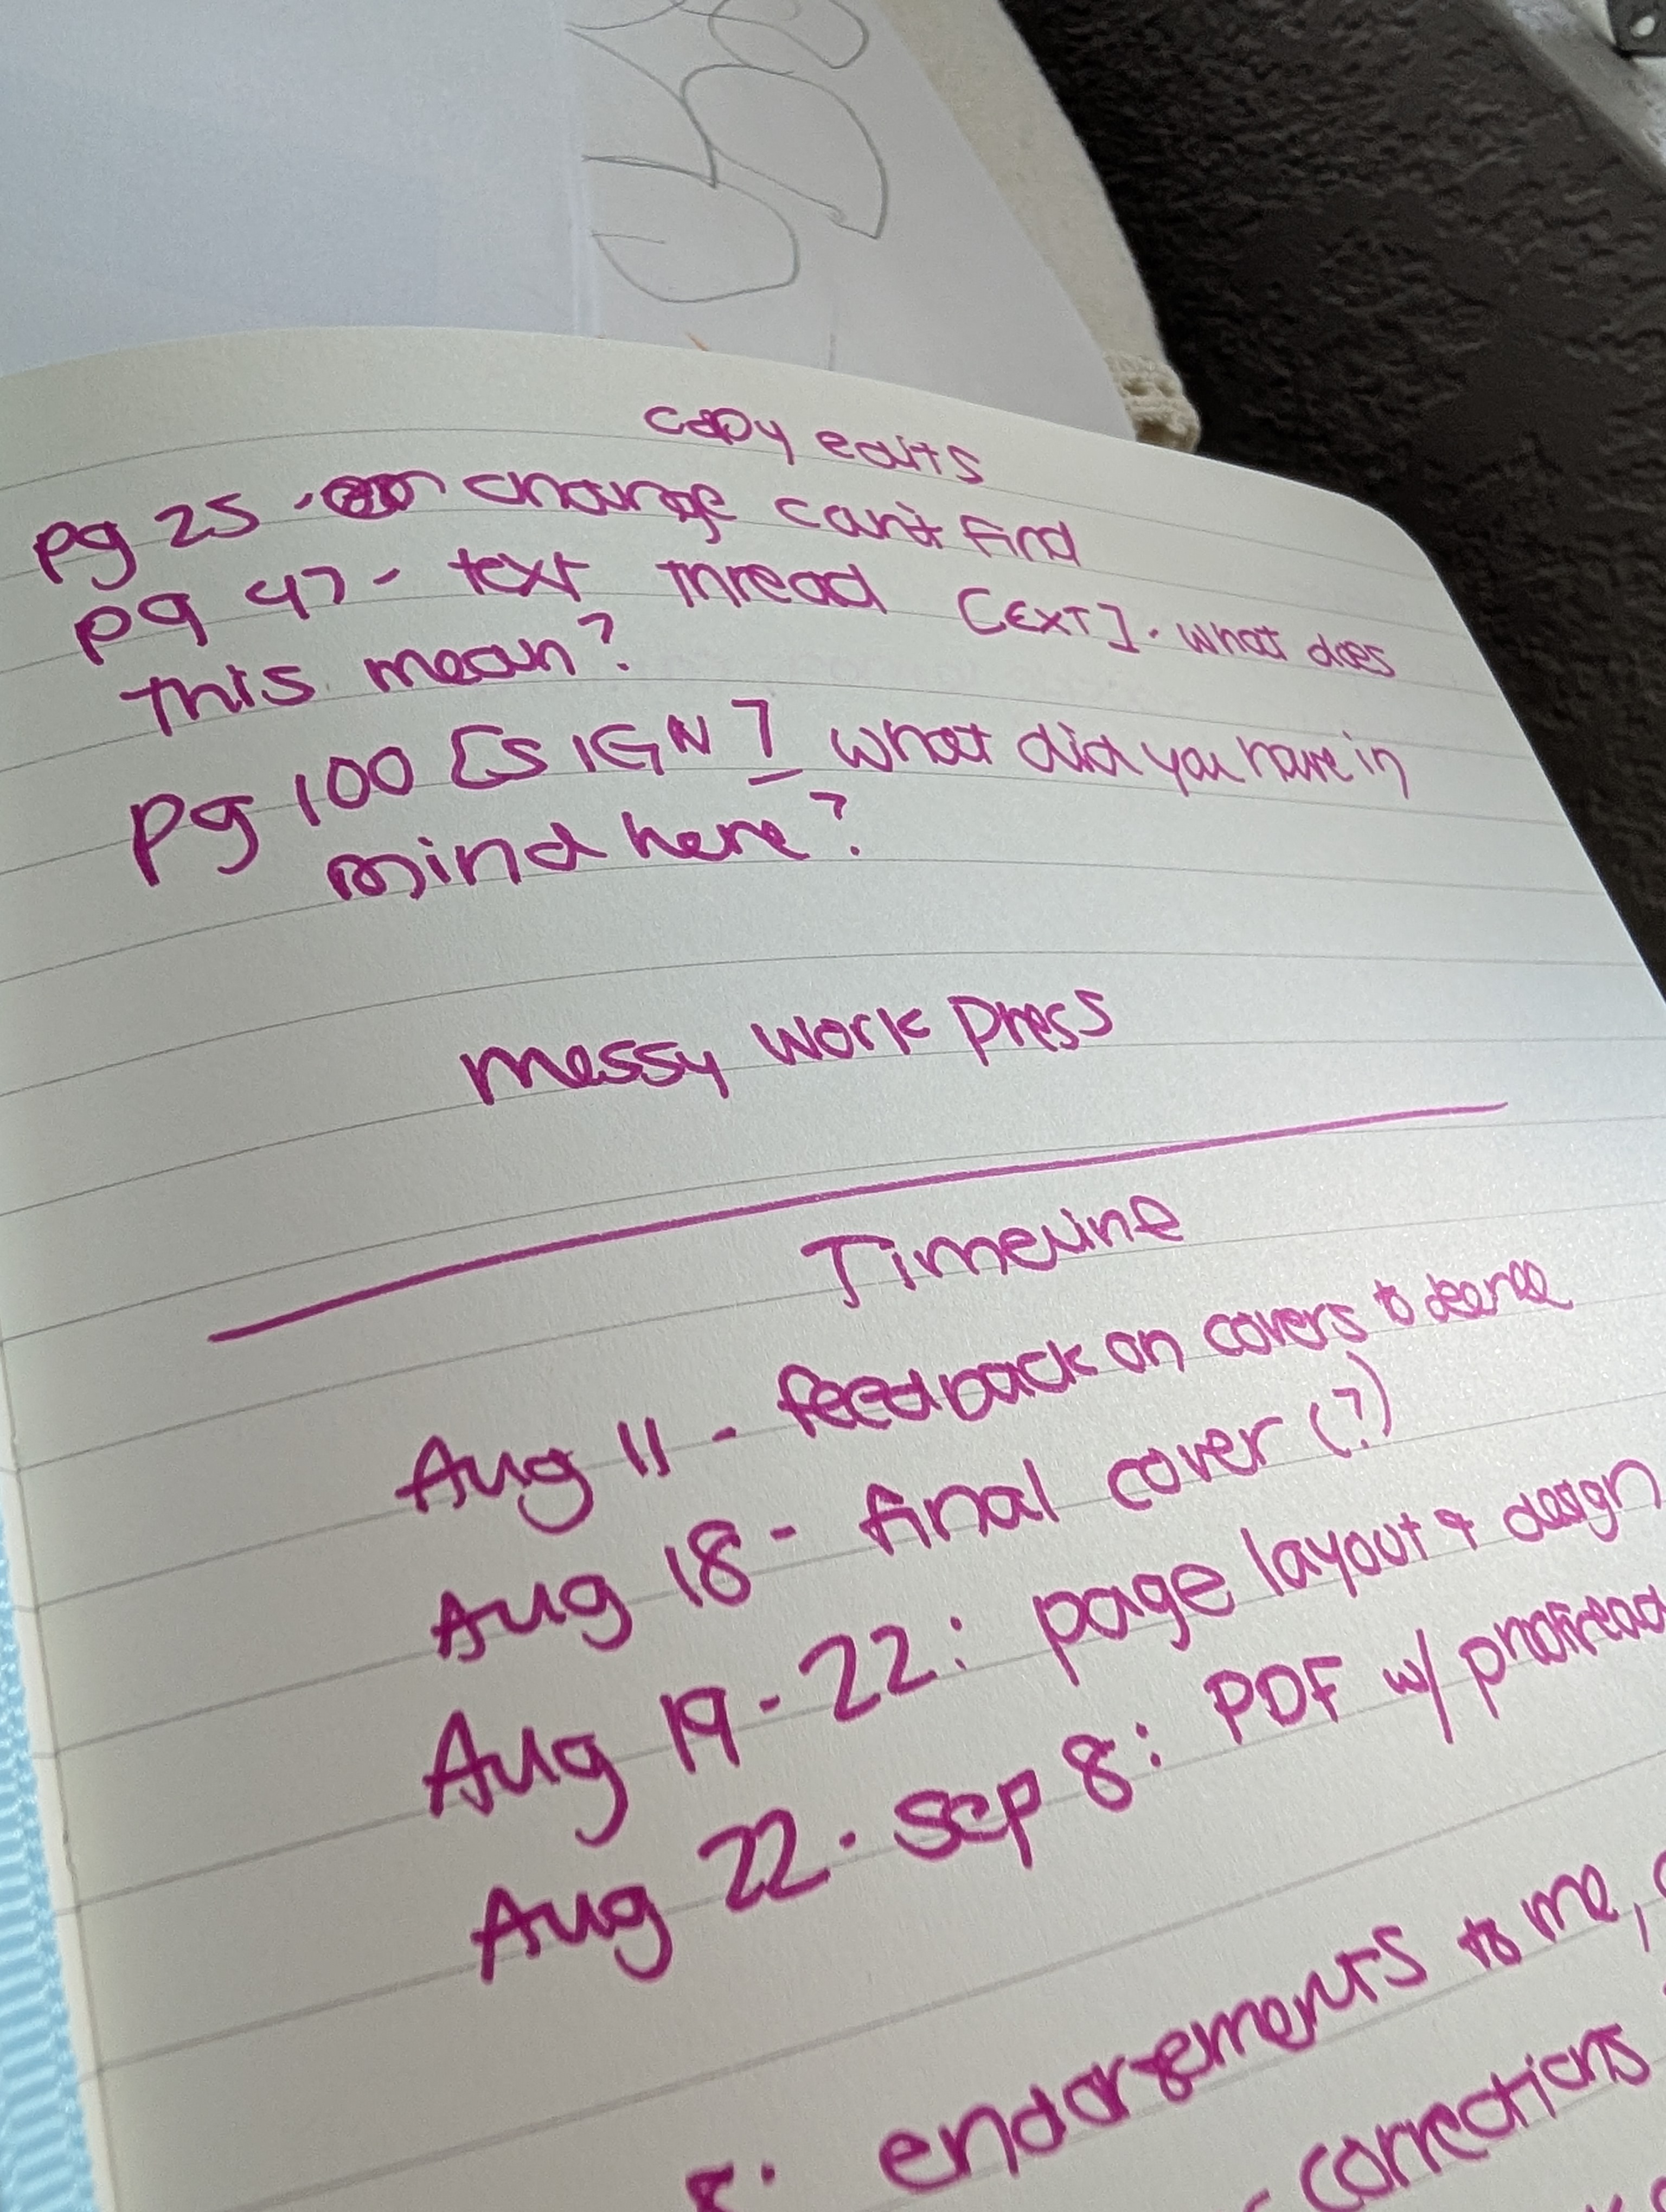 copy edits
pg 25 - change can't find
pg 47 - text thread [EXT] - what does
this mean?
pg 100 [SIGN] what did you have in
mind here?
messy work press
Timeline
Aug 11 - feedback on covers to
Aug 18 - final cover (?)
Aug 19-22: page layout + design
Aug 22 - sep 8: PDF w/ proofread
8: endorsements to me,
- corrections